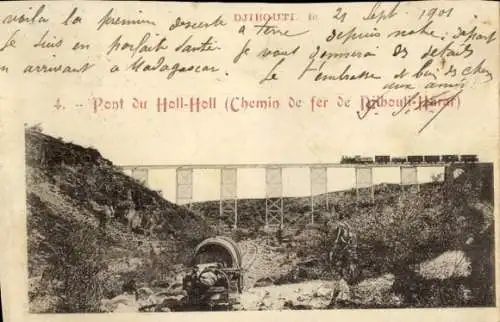 DJIBOUTI, le 21 Sept. 1901
voila la première descente à terre depuis notre départ
Je suis en parfait santé je vous donnerai des détails
en arrivant à Madagascar. Je t'embrasse et bien des choses
aux amis
4. - Pont du Holl-Holl (Chemin de fer de Djibouti-Harar)